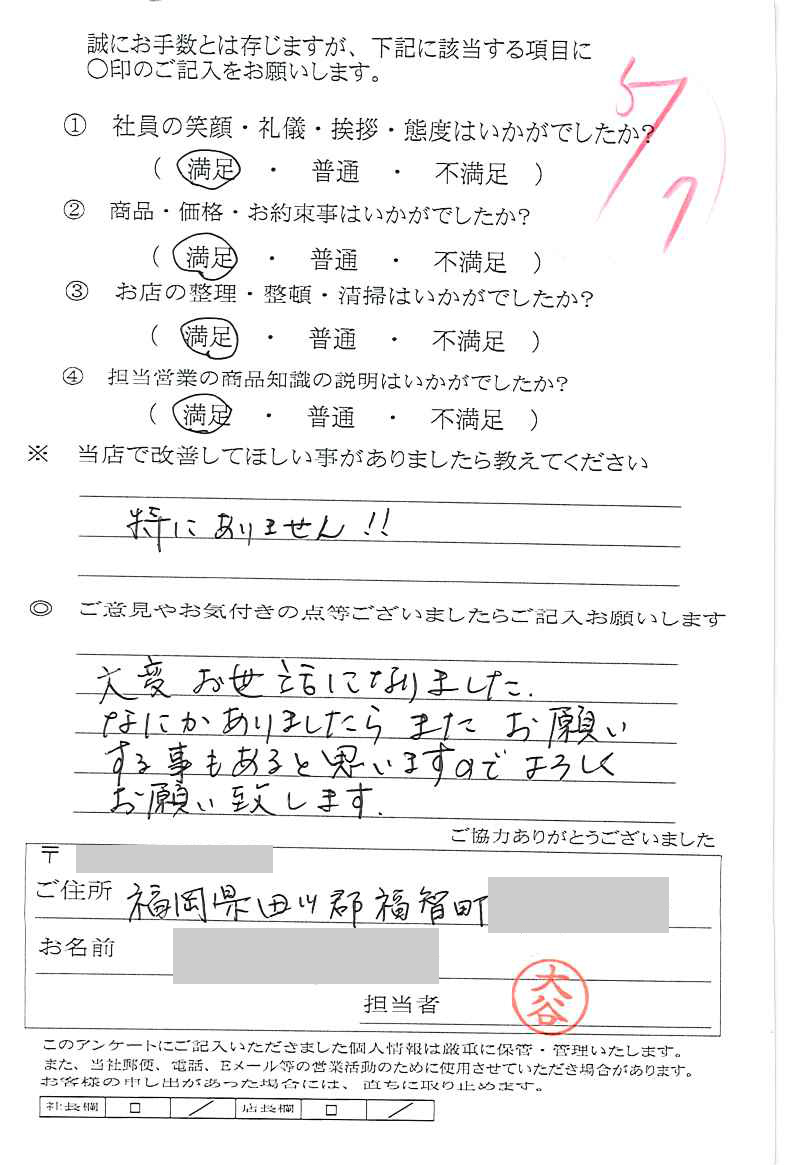 誠にお手数とは存じますが、下記に該当する項目に
〇印のご記入をお願いします。
5/7
① 社員の笑顔・礼儀・挨拶・態度はいかがでしたか?
( 満足 ・ 普通 ・ 不満足 )
② 商品・価格・お約束事はいかがでしたか?
( 満足 ・ 普通 ・ 不満足 )
③ お店の整理・整頓・清掃はいかがでしたか?
( 満足 ・ 普通 ・ 不満足 )
④ 担当営業の商品知識の説明はいかがでしたか?
( 満足 ・ 普通 ・ 不満足 )
※ 当店で改善してほしい事がありましたら教えてください
特にありません!!
◎ ご意見やお気付きの点等ございましたらご記入お願いします
大変お世話になりました.
なにかありましたら また お願い
する事もあると思いますのでよろしく
お願い致します.
ご協力ありがとうございました
〒
ご住所 福岡県田川郡福智町
お名前
担当者 大谷
このアンケートにご記入いただきました個人情報は厳重に保管・管理いたします。
また、当社郵便、電話、Eメール等の営業活動のために使用させていただき場合があります。
お客様の申し出があった場合には、直ちに取り止めます。
社長欄 □ ／ 店長欄 □ ／